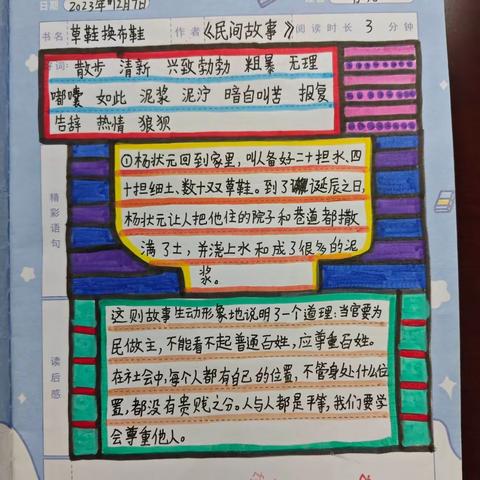 日期 2023年12月7日
书名 草鞋换布鞋 作者《民间故事》阅读时长 3 分钟
词：散步 清新 兴致勃勃 粗暴 无理
嘟囔 如此 泥浆 泥泞 暗自叫苦 报复
告辞 热情 狼狈
精彩语句
①杨状元回到家里，叫人备好二十担水、四
十担细土、数十双草鞋。到了诞辰之日，
杨状元让人把他住的院子和巷道都撒
满了土，并浇上水和成了很多的泥
浆。
读后感
这则故事生动形象地说明了一个道理：当官要为
民做主，不能看不起普通百姓，应尊重百姓。
在社会中，每个人都有自己的位置，不管身处什么位
置，都没有贵贱之分。人与人都是平等，我们要学
会尊重他人。